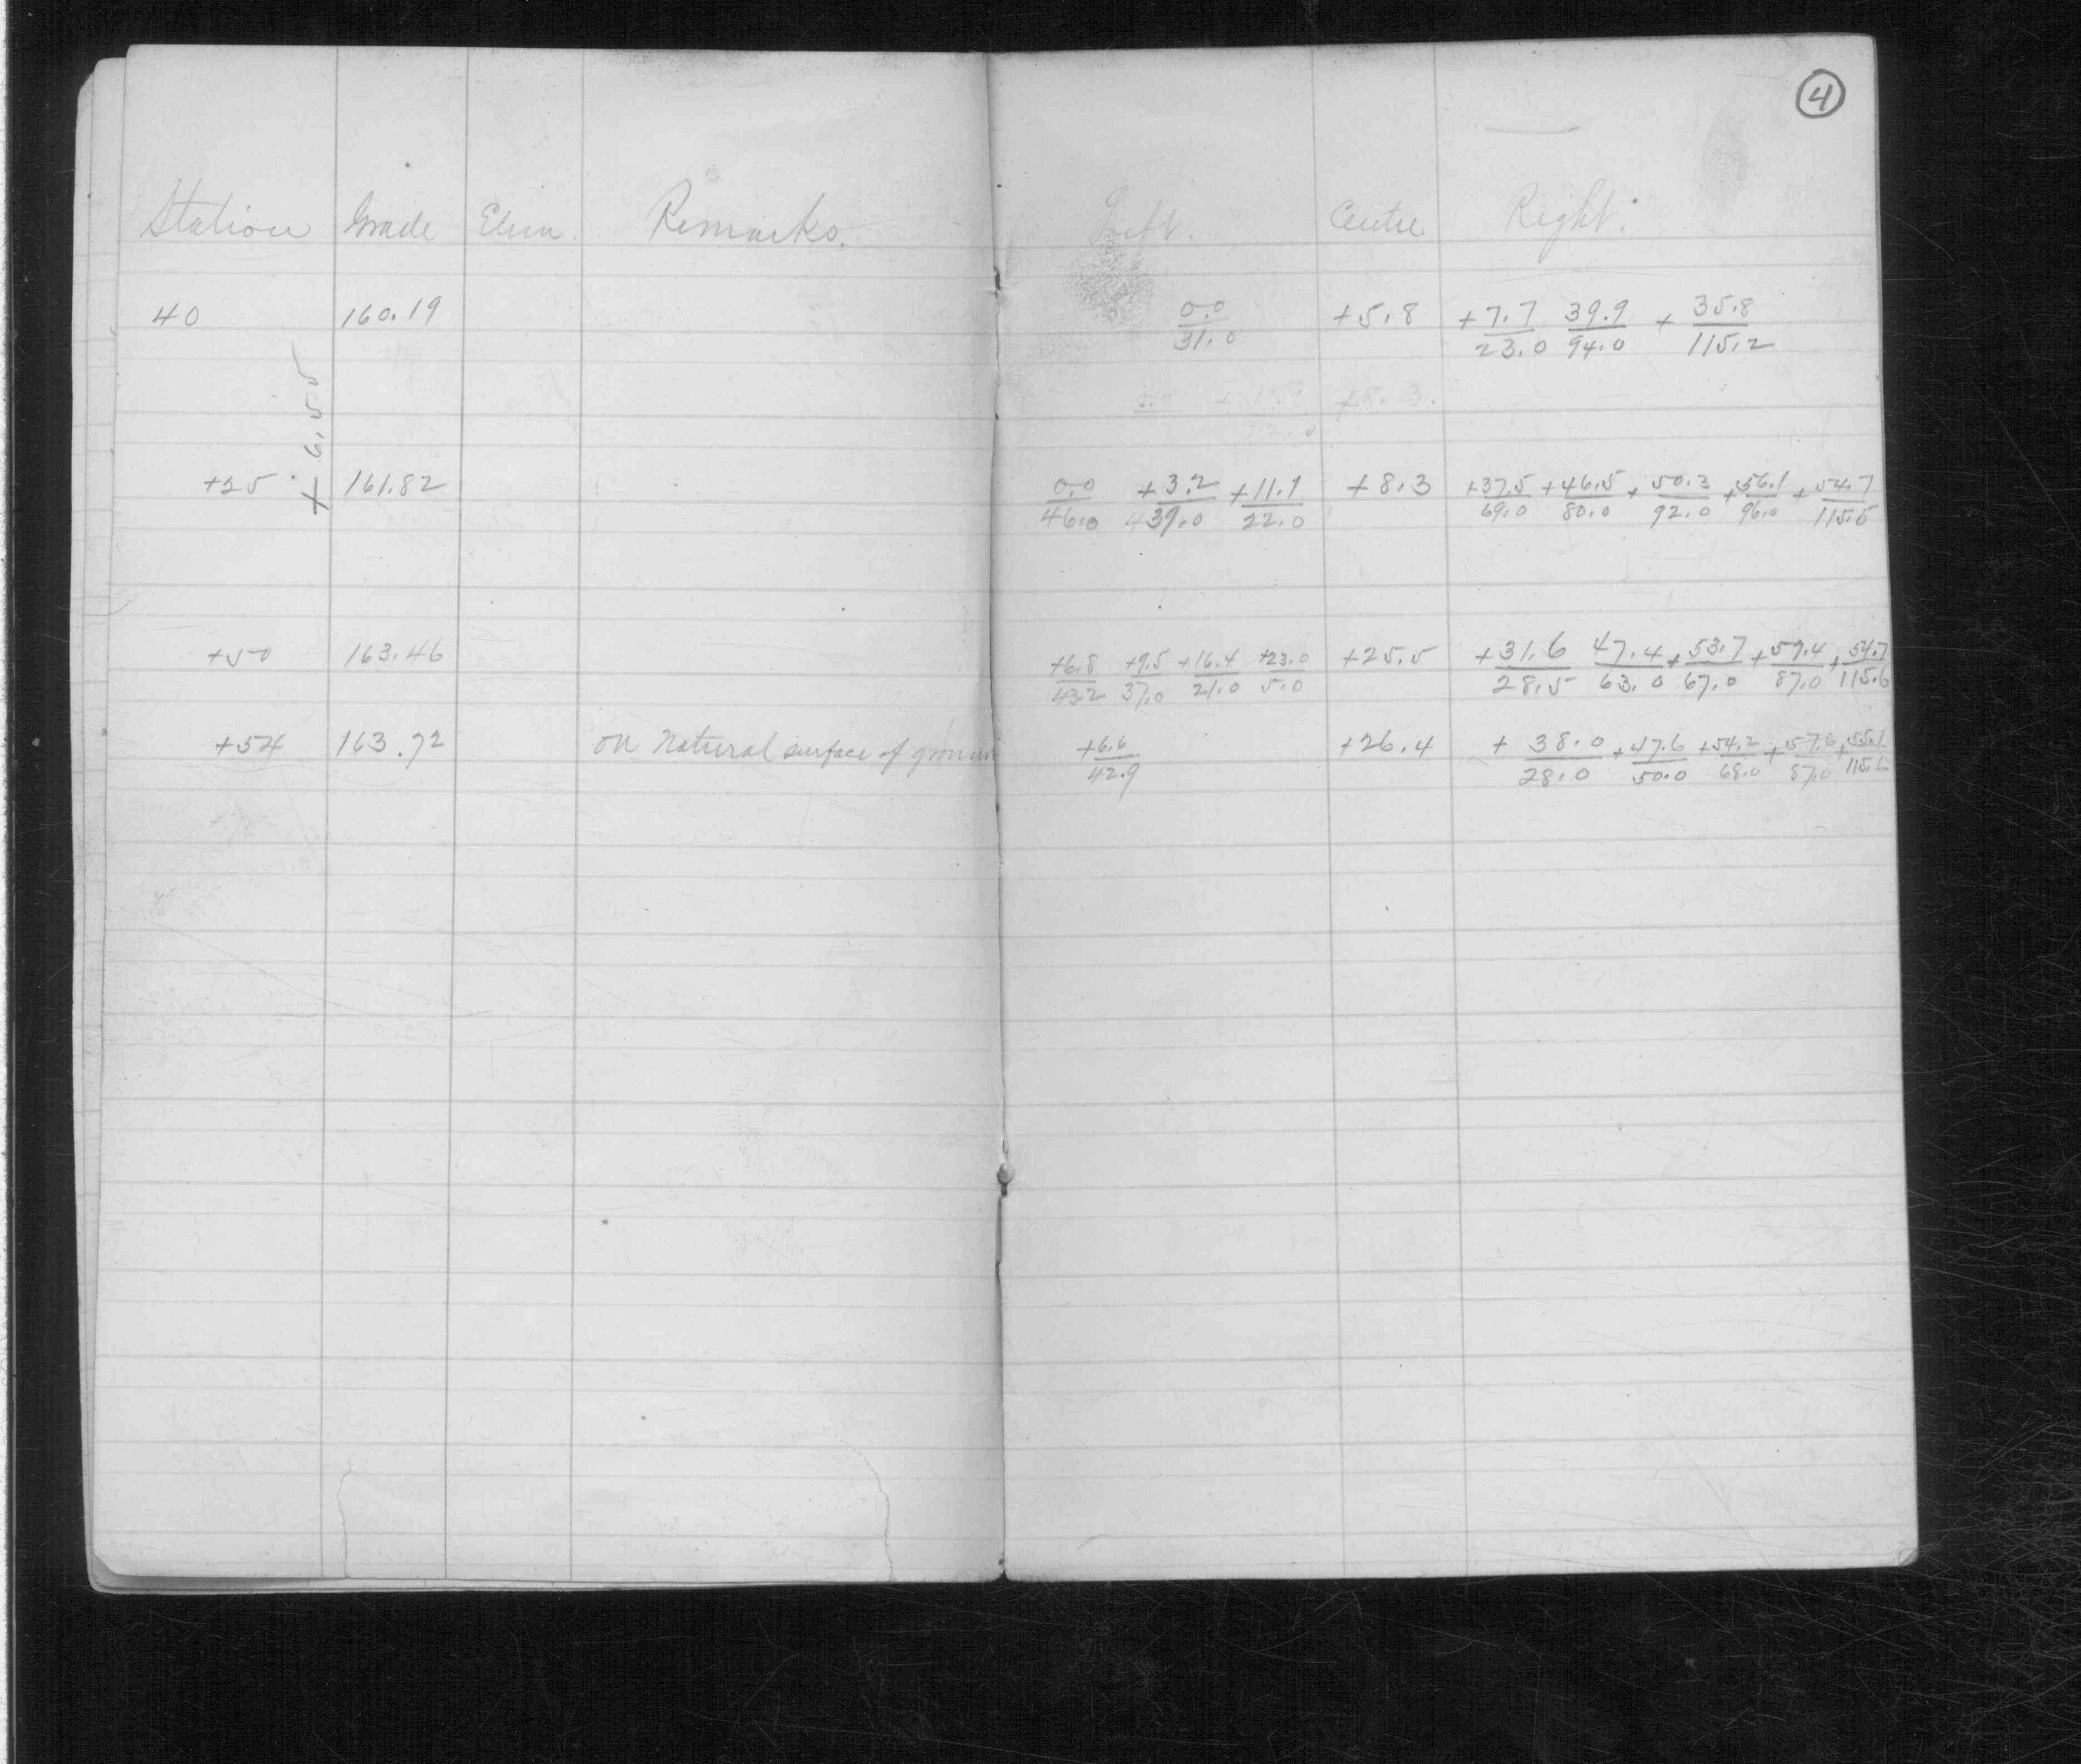 4
Station Grade Elevn. Remarks. Left. Centre Right.
40 160.19 0.0/31.0 +5.8 +7.7/23.0 39.9/94.0 + 35.8/115.2
+ 6.55
+25 161.82 0.0/46.0 +3.2/39.0 +11.1/22.0 +8.3 +37.5/69.0 +46.5/80.0 + 50.3/92.0 +56.1/96.0 + 54.7/115.6
+50 163.46 +6.8/43.2 +9.5/37.0 +16.4/21.0 +23.0/5.0 +25.5 +31.6/28.5 47.4/63.0 + 53.7/67.0 +59.4/87.0 + 54.7/115.6
+54 163.72 on Natural surface of ground +6.6/42.9 +26.4 + 38.0/28.0 +47.6/50.0 +54.2/68.0 +57.6/87.0 +55.1/115.6